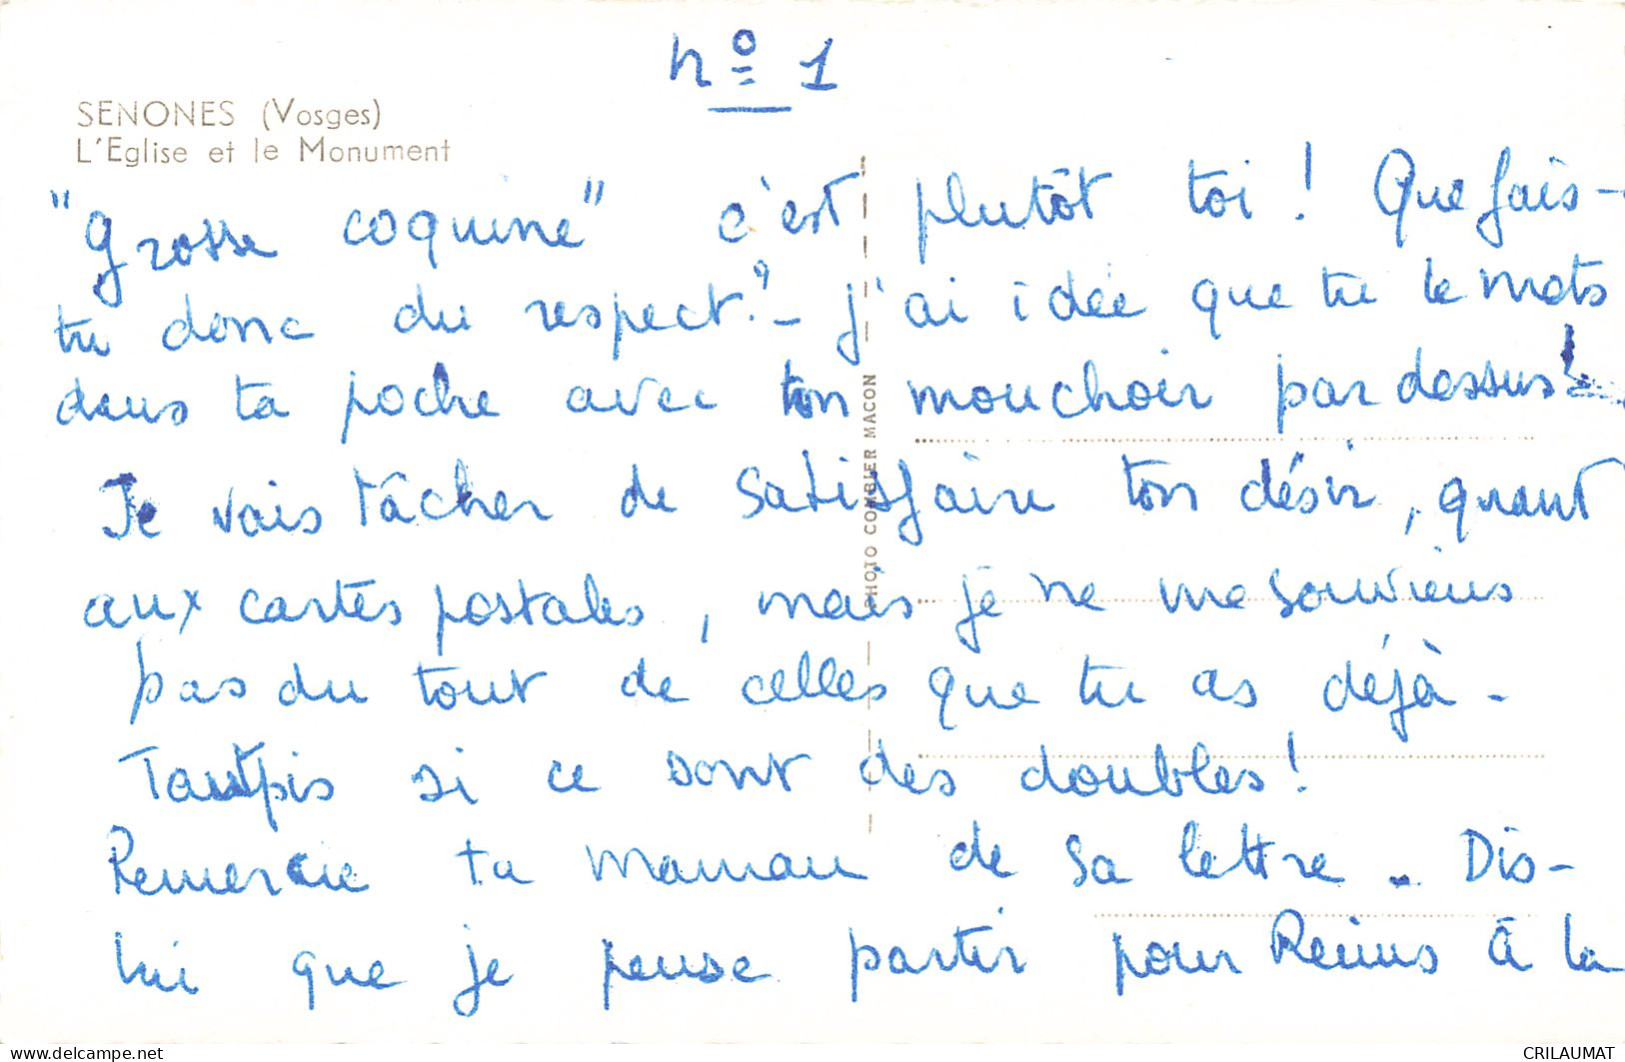 nº 1
SENONES (Vosges)
L'Eglise et le Monument
"grosse coquine" c'est plutôt toi ! Que fais-
tu donc du respect ? - J'ai idée que tu le mets
dans ta poche avec ton mouchoir par dessus !
Je vais tâcher de satisfaire ton désir, quant
aux cartes postales, mais je ne me souviens
pas du tout de celles que tu as déjà -
Tant pis si ce sont des doubles !
Remercie ta Maman de sa lettre. Dis-
lui que je pense partir pour Reims à la
PHOTO COMBIER MACON
delcampe.net
CRILAUMAT